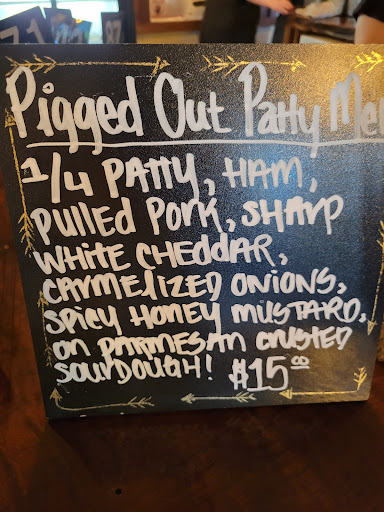 Pigged Out Patty Mel
1/4 PATTY, HAM,
PULLED PORK, SHARP
WHITE CHEDDAR,
CARMELIZED ONIONS,
SPICY HONEY MUSTARD,
ON PARMESAN CRUSTED
SOURDOUGH! $15